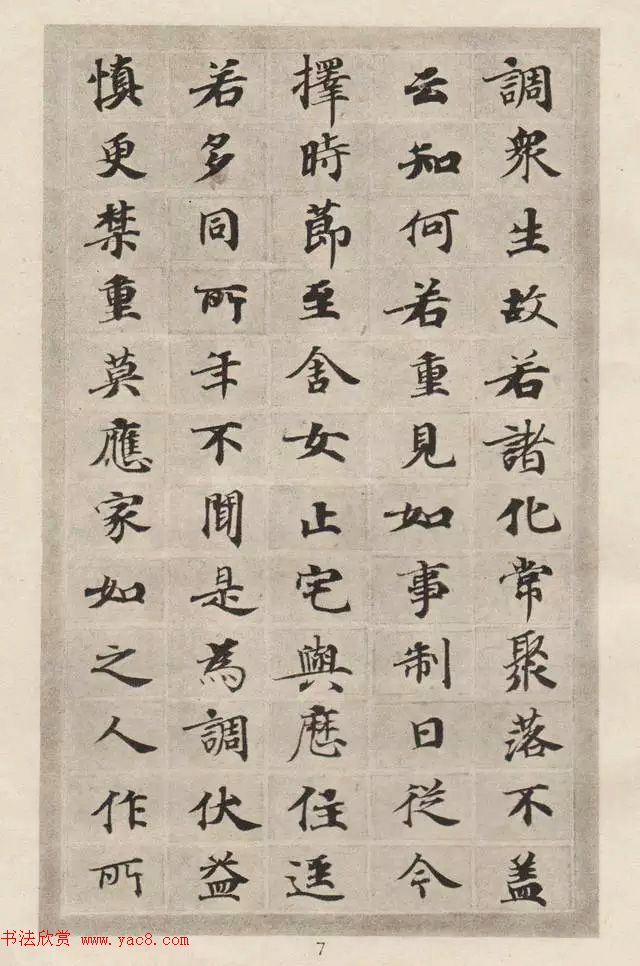 調衆生故若諸化常聚落不盖
云知何若重見如事制日從今
擇時節至舍女止宅與應住逕
若多同所年不聞是為調伏益
慎更禁重莫應家如之人作所
书法欣赏 www.yac8.com
7